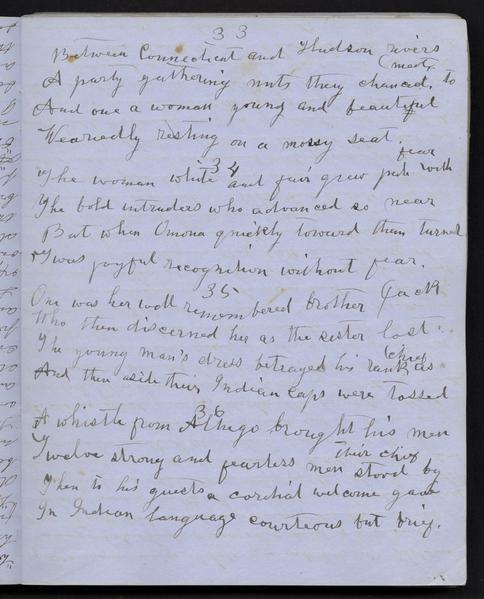 33
Between Connecticut and Hudson rivers
A party gathering nuts they chanced to (meet,
And one a woman young and beautiful
Weariedly resting on a mossy seat.
34
The woman white and fair grew pale with fear
The bold intruders who advanced so near
But when Omona quickly toward them turned
'Twas joyful recognition without fear.
35
One was her well remembered brother Jack
Who then discerned her as the sister lost.
The young man's dress betrayed his rank as (Chief
And then aside their Indian caps were tossed
36
A whistle from Althego brought his men
Twelve strong and fearless men stood by their chief
Then to his guests a cordial welcome gave
In Indian language courteous but brief.